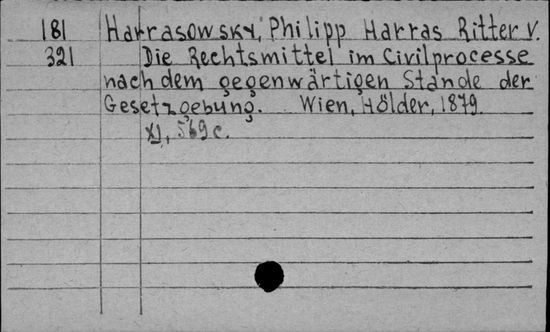 181 Harrasowsky, Philipp Harras Ritter v.
321 Die Rechtsmittel im Civilprocesse
nach dem gegenwärtigen Stande der
Gesetzgebung. Wien, Hölder, 1879.
XI, 569 c.